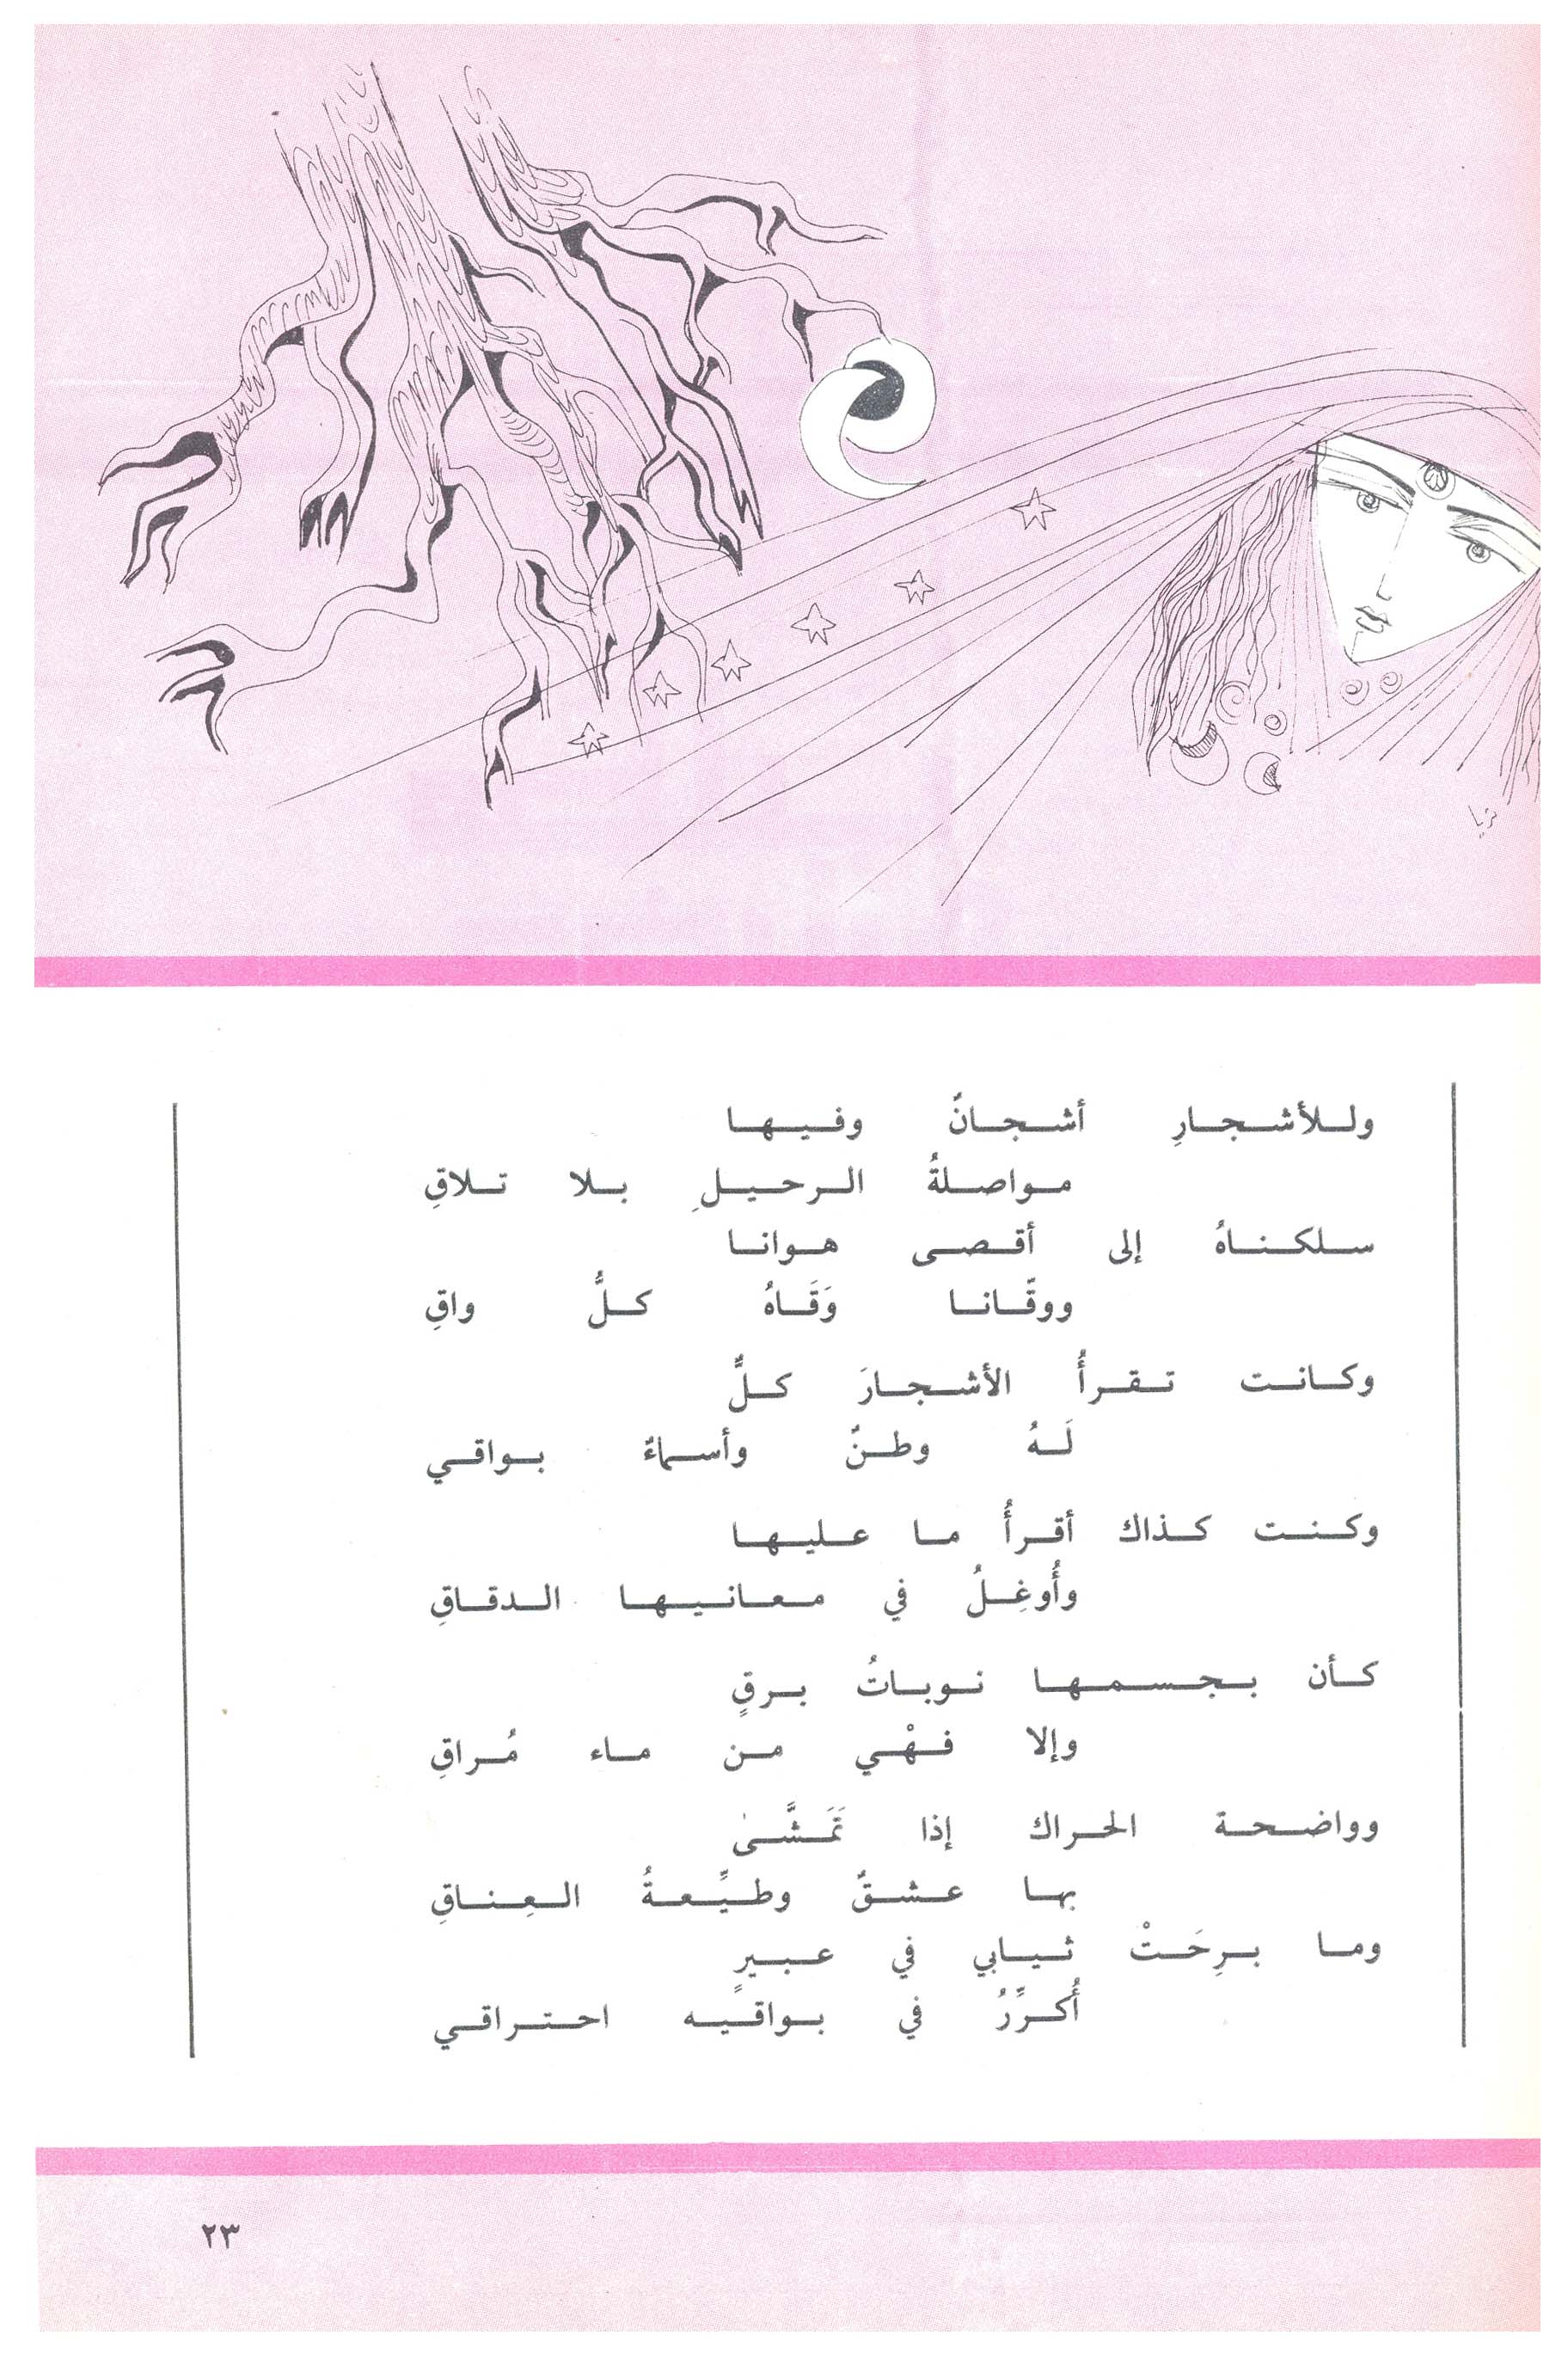 ثريا
وللأشجارِ أشجانٌ وفيها
مواصلةُ الرحيلِ بلا تلاقِ
سلكناهُ إلى أقصى هوانا
ووقّانا وَقَاهُ كلُّ واقِ
وكانت تقرأُ الأشجارَ كلٌّ
لَهُ وطنٌ وأسماءٌ بواقي
وكنت كذاك أقرأُ ما عليها
وأُوغِلُ في معانيها الدقاقِ
كأن بجسمها نوباتُ برقٍ
وإلا فهْي من ماء مُراقِ
وواضحة الحراك إذا تَمَشَّى
بها عشقٌ وطيِّعةُ العِناقِ
وما برِحَتْ ثيابي في عبيرٍ
أُكرِّرُ في بواقيه احتراقي
٢٣